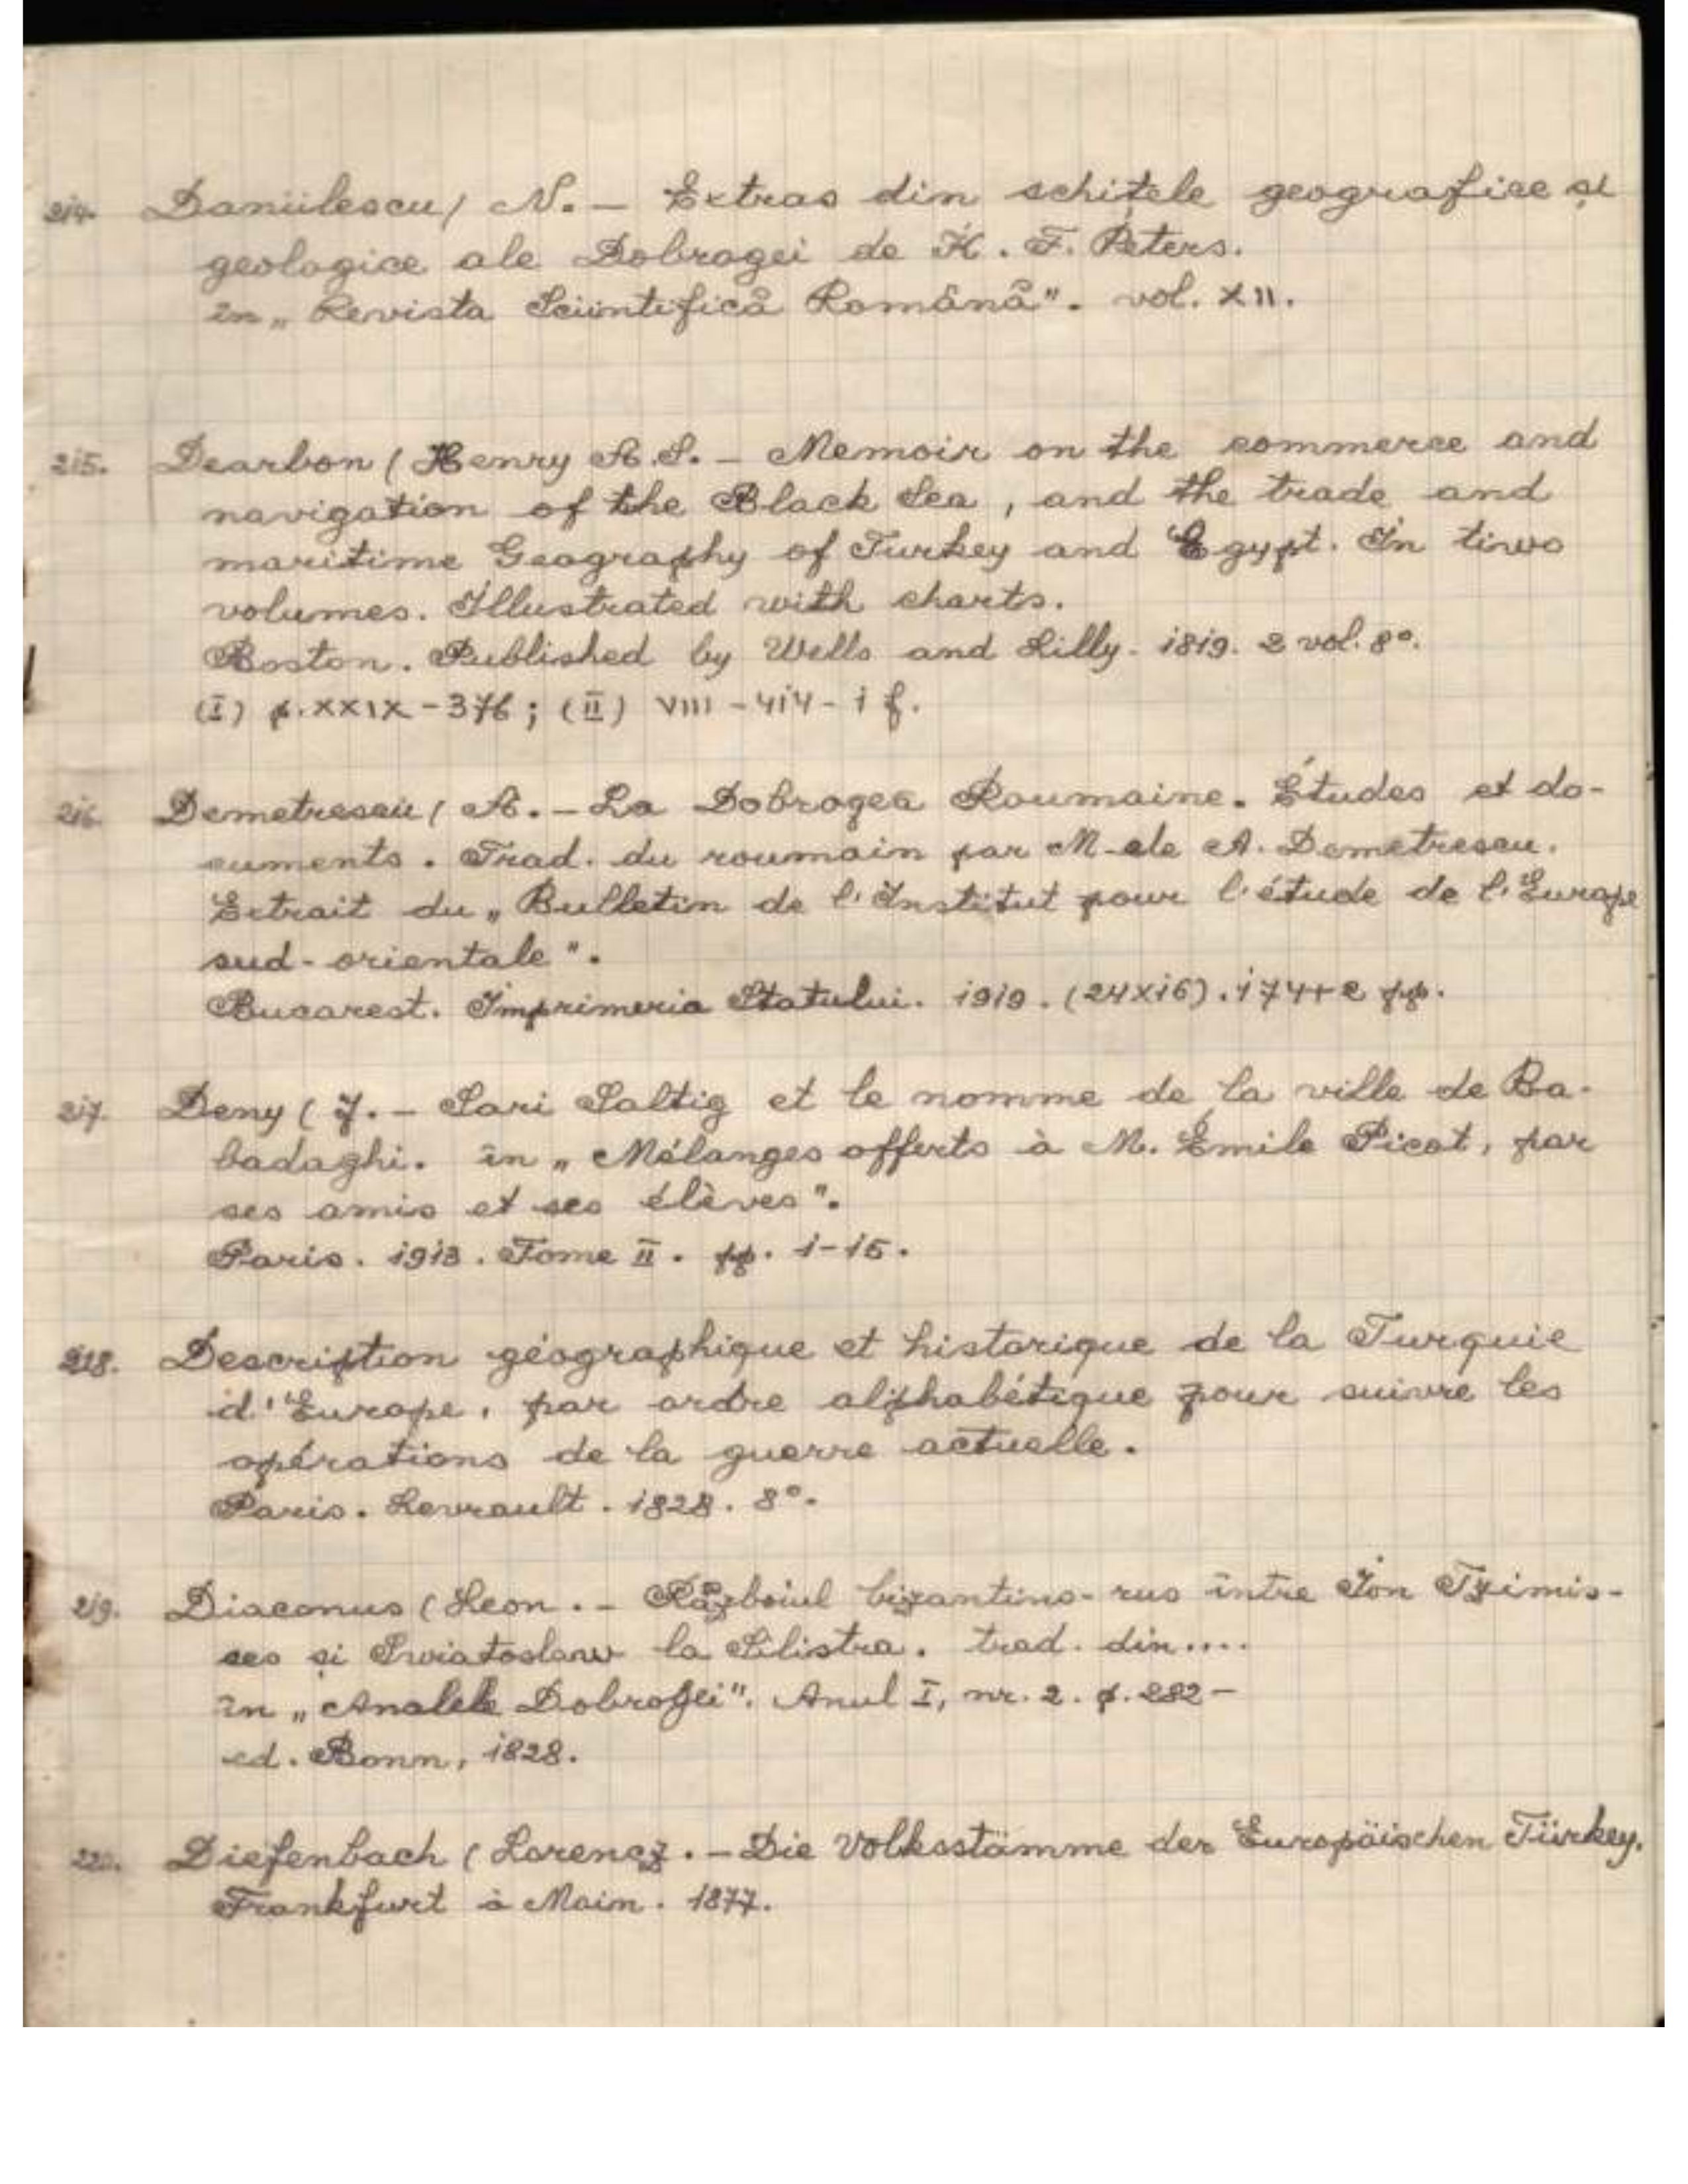 214. Daniilescu / N. — Extras din schițele geografice și
geologice ale Dobrogei de K. F. Peters.
în „Revista Sciintifică Română". vol. XII.
215. Dearbon (Henry A.S. — Memoir on the commerce and
navigation of the Black Sea, and the trade and
maritime Geography of Turkey and Egypt. In tiwo
volumes. Illustrated with charts.
Boston. Published by Wells and Lilly. 1819. 2 vol. 8°.
(I) p. XXIX - 376; (II) VIII - 414 - 1 f.
216. Demetrescu / A. — La Dobrogea Roumaine. Études et do-
cuments. Trad. du roumain par M-ele A. Demetrescu.
Extrait du „Bulletin de l'Institut pour l'étude de l'Europe
sud-orientale".
Bucarest. Imprimeria Statului. 1919. (24x16). 174+2 pp.
217. Deny (J. — Sari Saltig et le nomme de la ville de Ba-
badaghi. în „Mélanges offerts à M. Émile Picot, par
ses amis et ses élèves".
Paris. 1913. Tome II. pp. 1-15.
218. Description géographique et historique de la Turquie
d'Europe, par ordre alphabétique pour suivre les
opérations de la guerre actuelle.
Paris. Levrault. 1828. 8°.
219. Diaconus (Leon. — Războiul bizantino-rus între Ion Tzimis-
ses și Swiatoslaw la Silistra. trad. din....
în „Analele Dobrogei". Anul I, nr. 2. p. 282 —
ed. Bonn, 1828.
220. Diefenbach (Lorencz. — Die Volksstämme der Europäischen Türkey.
Frankfurt à Main. 1877.